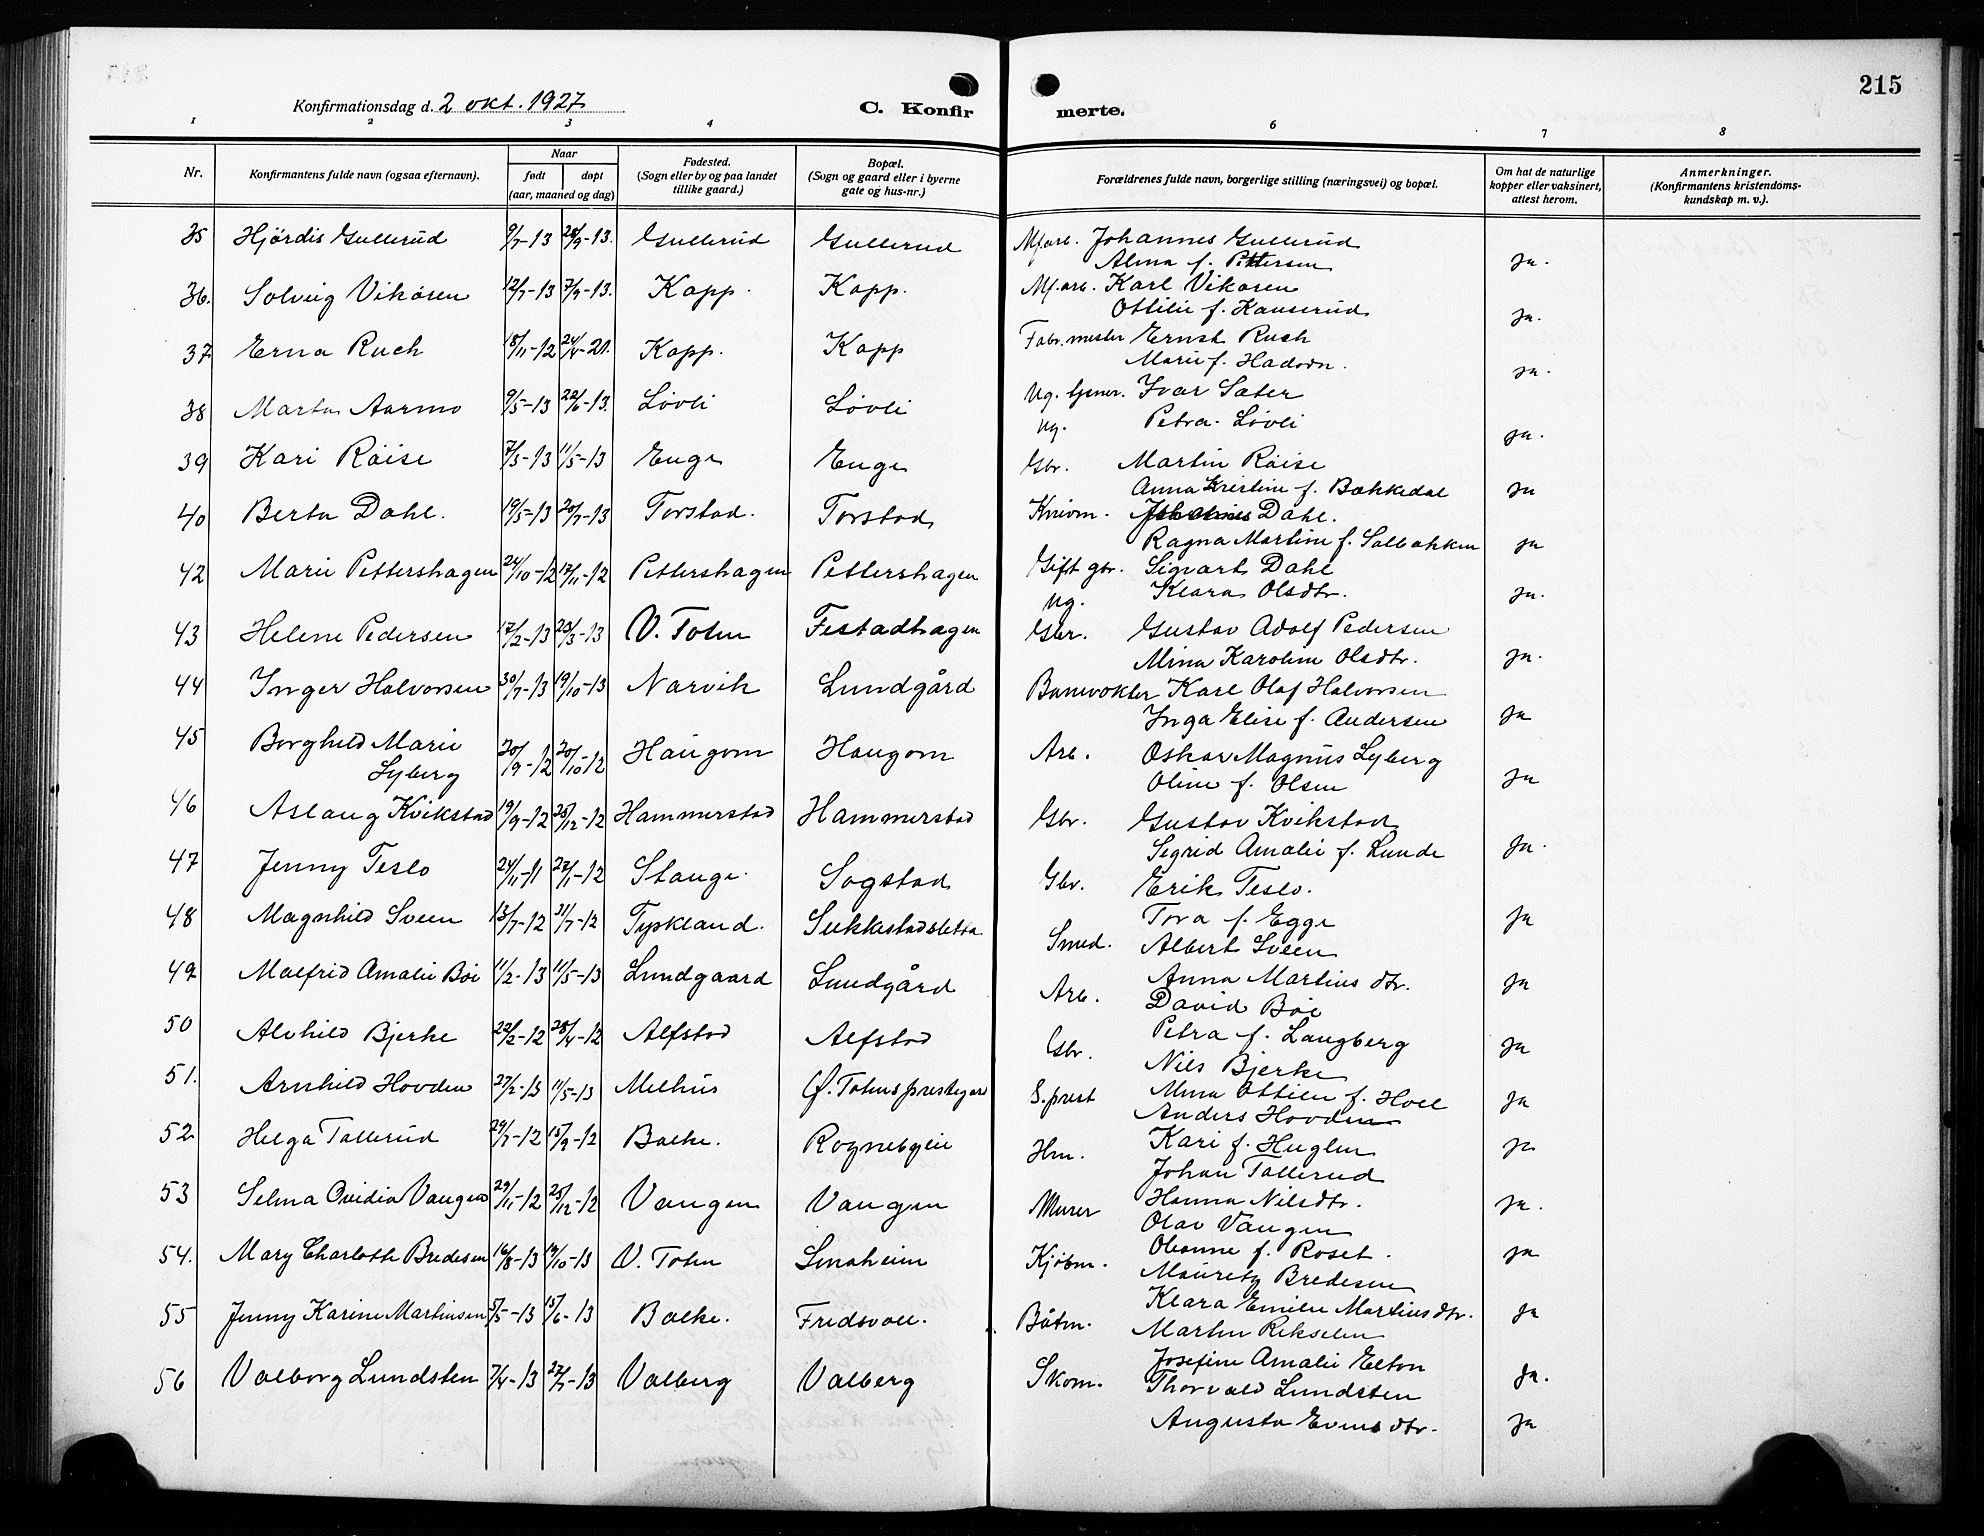 215
Konfirmationsdag d. 2 okt. 1927
C. Konfirmerte.
1 2 3 4 6 7 8
Nr. Konfirmantens fulde navn (ogsaa efternavn). Naar født døpt (aar, maaned og dag) Fødested. (Sogn eller by og paa landet tillike gaard.) Bopæl. (Sogn og gaard eller i byerne gate og hus-nr.) Forældrenes fulde navn, borgerlige stilling (næringsvei) og bopæl. Om hat de naturlige kopper eller vaksinert, attest herom. Anmerkninger. (Konfirmantens kristendoms-kundskap m. v.).
35 Hjördis Gullerud 9/7-13 28/9-13. Gullerud Gullerud Mf.arb. Johannes Gullerud
Alma f. Pettersen ja.
36. Solveig Vikåsen 12/7-13 7/9-13. Kapp. Kapp. Mf.arb. Karl Vikåsen
Ottilie f. Kauserud ja.
37 Erna Ruch 18/11-12 24/4-21. Kapp. Kapp Fabr.mester Ernst Ruch
Marie f. Hadodn. ja.
38 Marta Aarmo 9/5-13 22/6-13. Lövli Lövli Ug. tjener. Ivar Sæter
ug. Petra Lövli ja.
39 Kari Röise 7/3-13 11/5-13 Enge Enge Gbr. Martin Röise
Anna Kristine f. Bækkedal ja
40 Berta Dahl. 19/5-13 20/7-13 Torstad. Torstad Kreiom. Johannes Dahl.
Ragna Martine f. Solbakken ja
42 Marie Pettershagen 24/10-12 17/11-12 Pettershagen Pettershagen Gift gbr. Sigvart Dahl
ug. Klara Olsdtr. ja.
43 Helene Pedersen 17/2-13 23/3-13 V. Toten Festadhagen Gbr. Gustav Adolf Pedersen
Mina Karoline Olsdtr. ja.
44 Inger Halvorsen 30/7-13 19/10-13 Narvik Lundgård Banevokter Karl Olaf Halvorsen
Inga Elise f. Andersen ja
45 Borghild Marie
Lyberg 20/9-12 20/10-12 Haugom Haugom Arb. Oskar Magnus Lyberg
Oline f. Olsen ja
46 Aslaug Kvikstad 19/9-12 25/12-12 Hammerstad Hammerstad Gbr. Gustav Kvikstad
Sigrid Amalie f. Lunde ja.
47 Jenny Teslo 24/11-11 27/1-12 Stange. Sogstad Gbr. Erik Teslo.
Tora f. Egge ja
48 Magnhild Sveen 13/7-12 21/7-12 Tyskland. Sukkestadsletta Smed. Albert Sveen
Anna Martinsdtr. ja
49 Malfrid Amalie Böe 11/2-13 11/5-13 Lundgaard Lundgård Arb. David Böe
Petra f. Langberg ja
50 Alvhild Bjerke 22/2-12 28/4-12 Alfstad Alfstad Gbr. Nils Bjerke
Mina Ottilie f. Hoel ja
51. Arnhild Hovden 27/2-13 11/5-13 Melhus Ø. Totens prestegard S.prest Anders Hovden
Kari f. Huglen ja
52 Helga Tollerud 29/7-12 15/9-12 Balke. Rognebyeie Hm. Johan Tollerud
Hanna Nilsdtr. ja.
53 Selma Ovidia Vangen 29/11-12 25/12-12 Vangen Vangen Murer Olav Vangen
Oleanne f. Roset. ja
54. Mary Charlotte Bredesen 16/8-13 19/10-13 V. Toten Smaheim Kjöbm. Mauretz Bredesen
Klara Emilie Martinsdtr. ja
55 Jenny Karine Martinsen 5/5-13 15/6-13 Balke. Fredsvoll. Båtm. Martin Rikselen
Josefine Amalie Elton ja.
56 Valborg Lundsten 7/4-13 27/7-13 Valberg Valberg Skom. Thorvald Lundsten
Augusta Evensdtr. ja